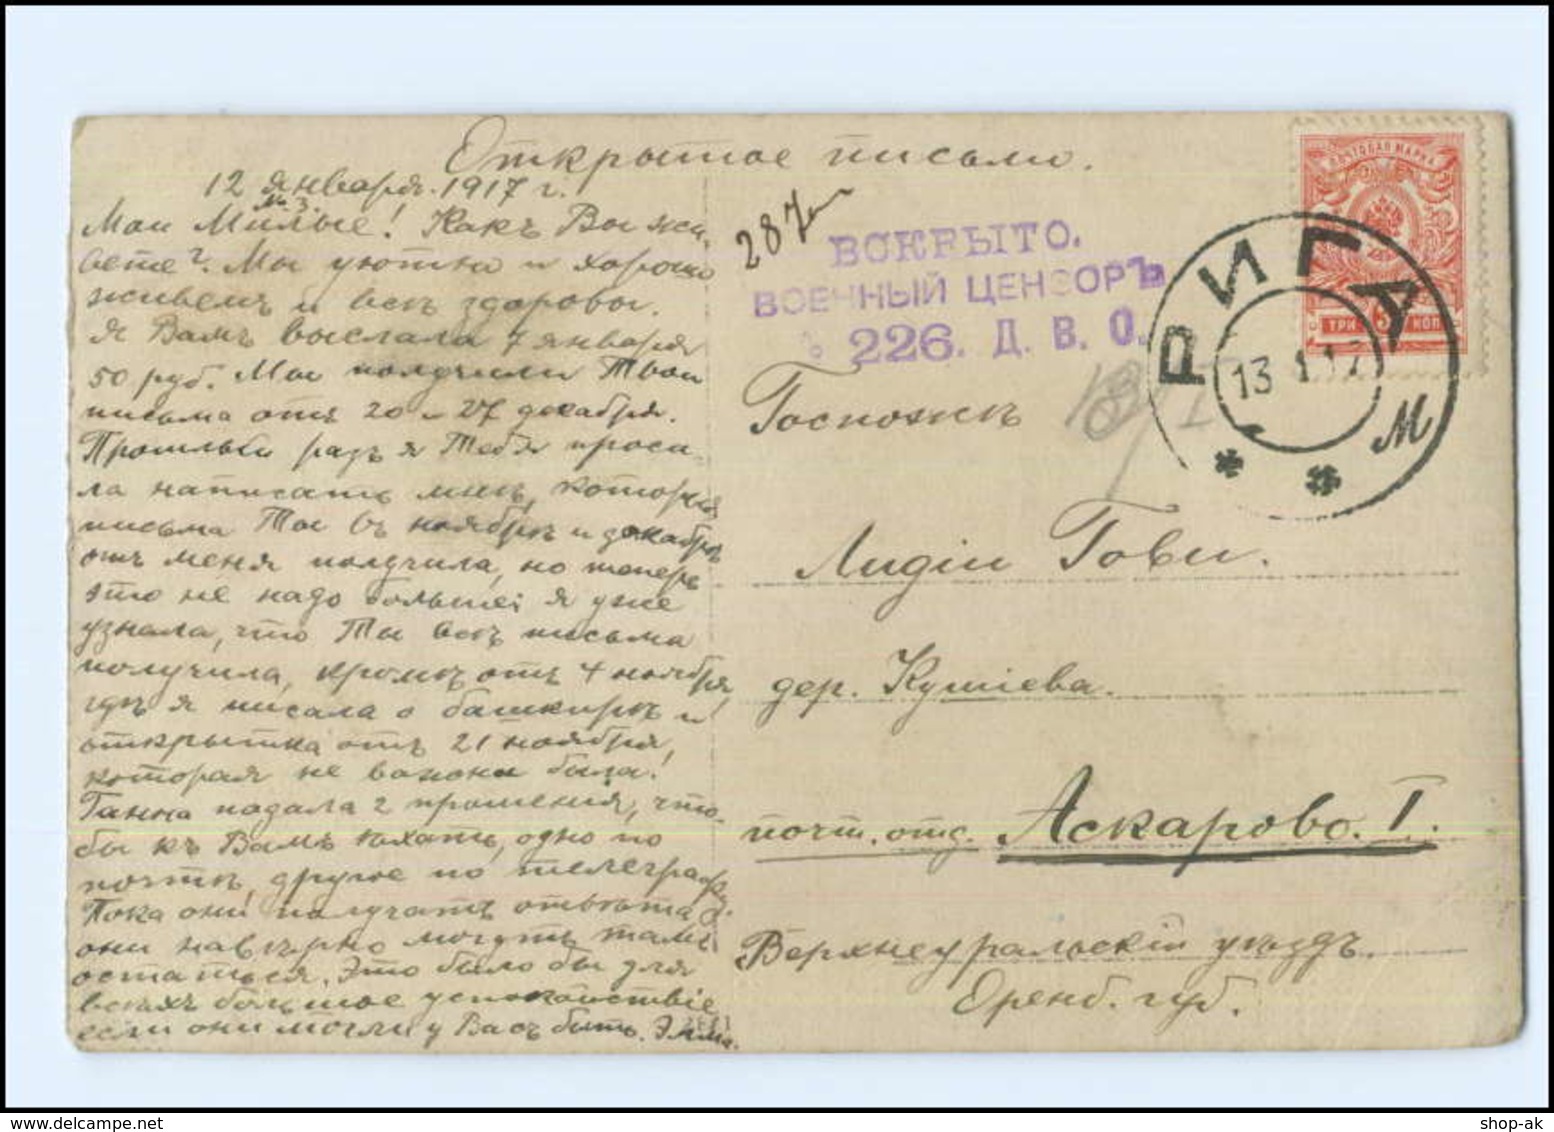 Открытое письмо.
12 января. 1917 г.
№ 3.
Мои Милые! Какъ Вы жи-
вете? Мы уютно и хорошо
живемъ и всѣ здоровы.
Я Вамъ выслала 7 января
50 руб. Мы получили Твои
письма отъ 20 и 27 декабря.
Прошлый разъ я Тебя проси-
ла написать мнѣ, которыя
письма Ты въ ноябрѣ и декабрѣ
отъ меня получила, но теперь
это не надо больше; я уже
узнала, что Ты всѣ письма
получила, кромѣ отъ 4 ноября,
гдѣ я писала о башкирѣ и
открытка отъ 21 ноября,
которая не важна была!
Ганна подала 2 прошенія, что-
бы къ Вамъ ѣхать, одно по
почтѣ, другое по телеграфу.
Пока они получатъ отвѣта
они навѣрно могутъ тамъ
остаться. Это было бы для
всѣхъ большое успокойствіе
если они могли у Васъ быть. Эмма.
287
ВСКРЫТО.
ВОЕННЫЙ ЦЕНЗОРЪ
226. Д. В. О.
ПОЧТОВАЯ МАРКА
ТРИ 3 КОП
РИГА
13 1 17
М
Госпожѣ
Лидіи Гови.
дер. Кушіева.
почт. отд. Аскарово. I.
Верхнеуральскій уѣздъ.
Оренб. губ.
shop-ak